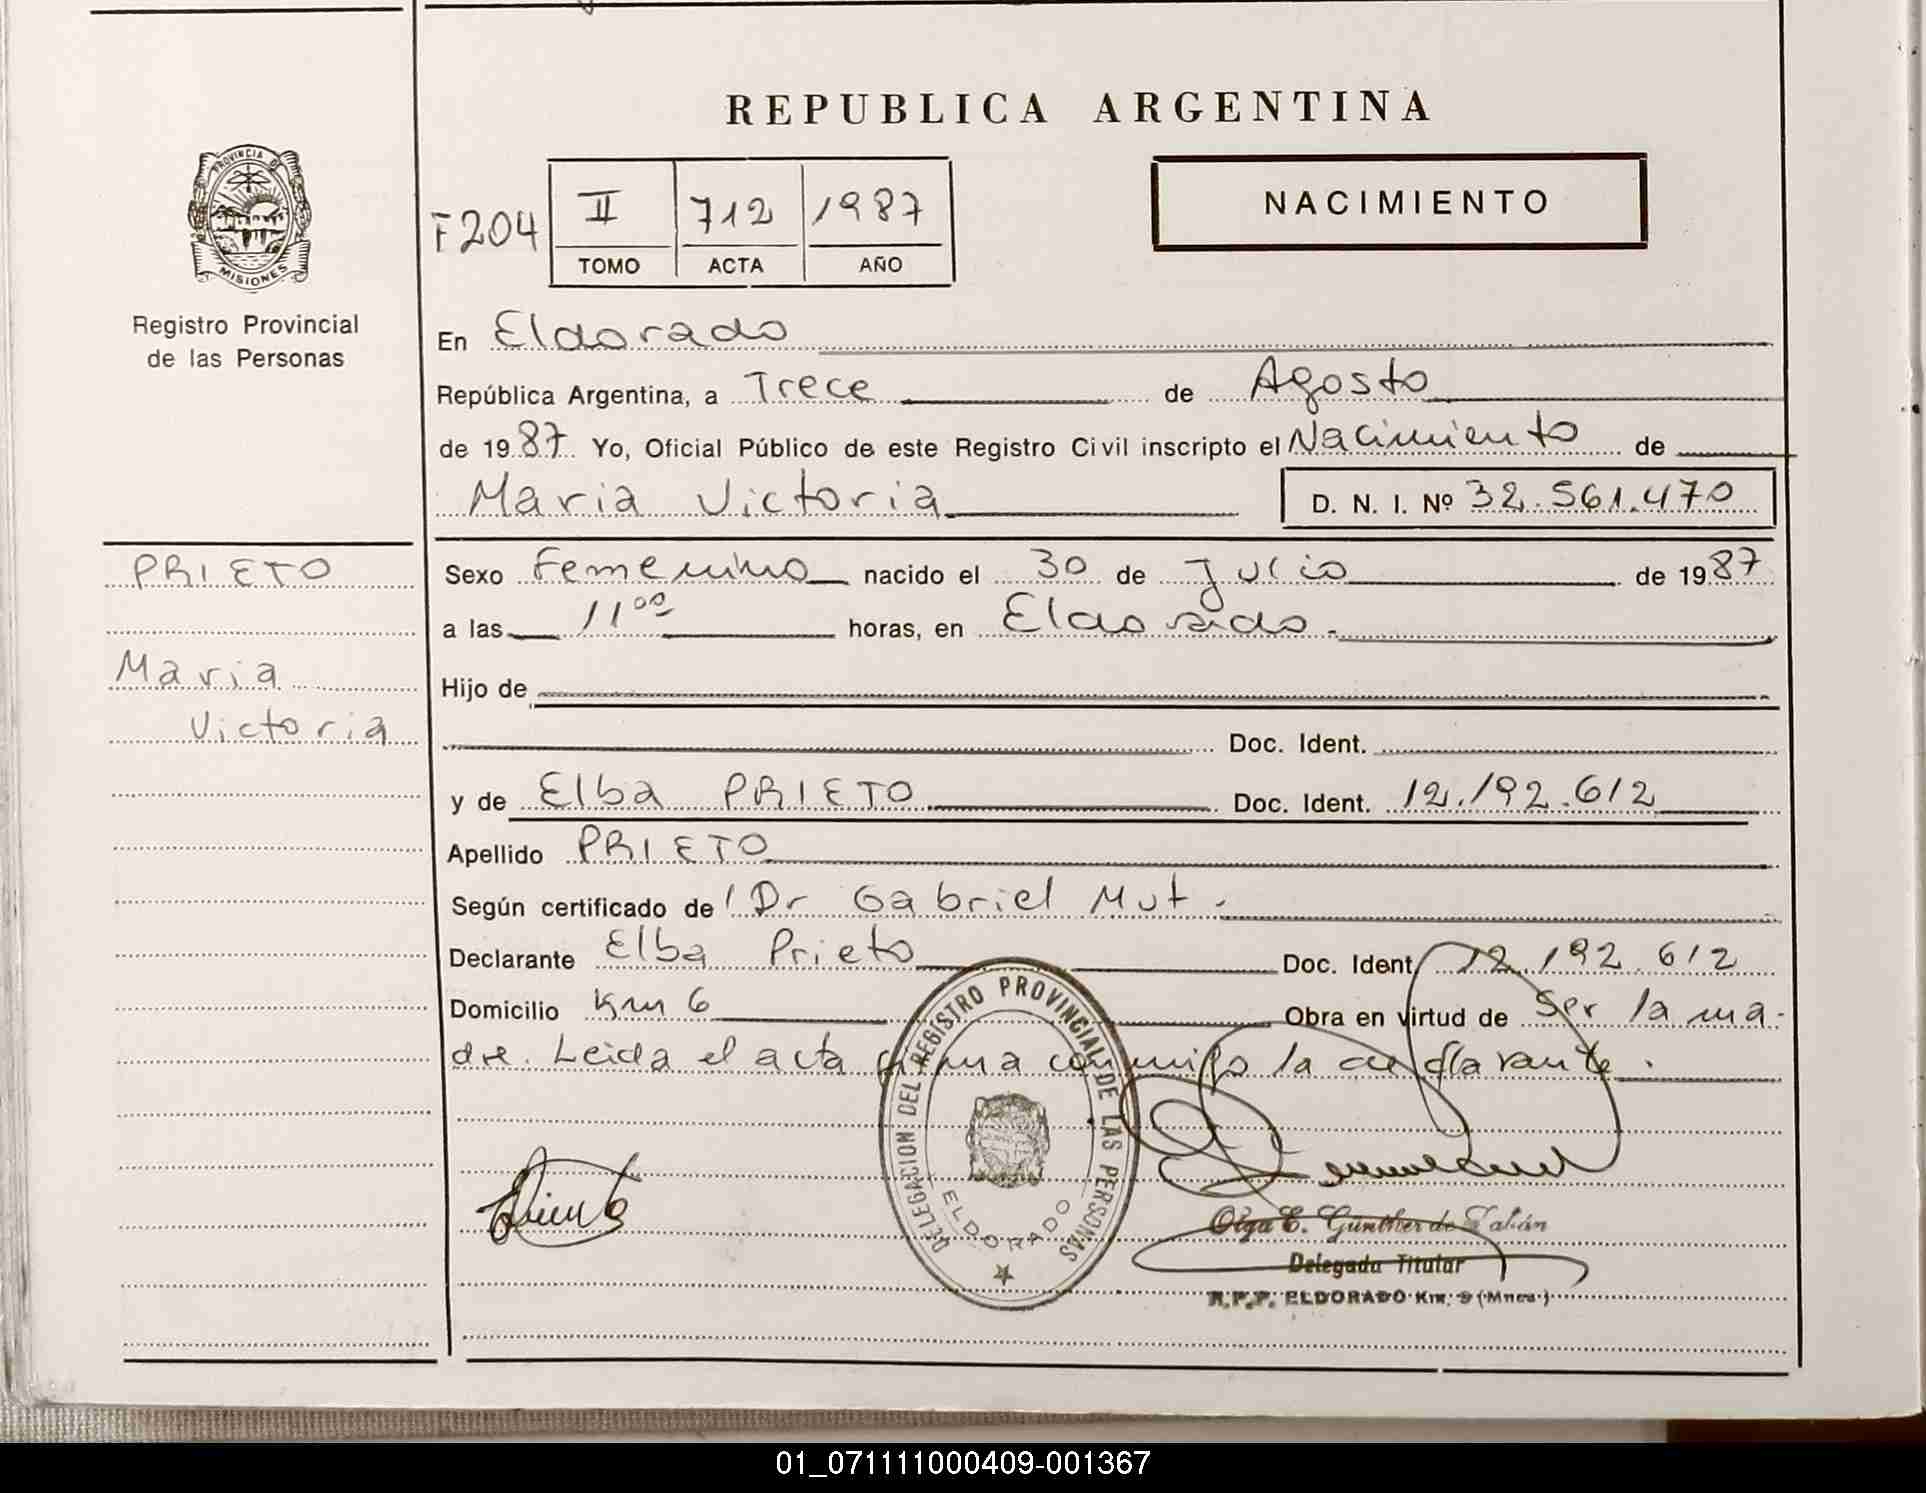 REPUBLICA ARGENTINA
PROVINCIA DE
MISIONES
Registro Provincial
de las Personas
F204
II 712 1987
TOMO ACTA AÑO
NACIMIENTO
En Eldorado
República Argentina, a Trece de Agosto
de 1987 Yo, Oficial Público de este Registro Civil inscripto el Nacimiento de
Maria Victoria D. N. I. Nº 32.561.470
PRIETO
Maria
Victoria
Sexo Femenino nacido el 30 de Julio de 1987
a las 11⁰⁰ horas, en Eldorado.
Hijo de
Doc. Ident.
y de Elba PRIETO Doc. Ident. 12.192.612
Apellido PRIETO
Según certificado de Dr Gabriel Mut.
Declarante Elba Prieto Doc. Ident. 12.192.612
Domicilio Km 6 Obra en virtud de Ser la ma-
dre. Leida el acta firma conmigo la declarante.
DELEGACION DEL REGISTRO PROVINCIAL DE LAS PERSONAS
ELDORADO
Olga E. Günther de
Delegada Titular
R.P.P. ELDORADO Km. 9 (Mnes.)
01_071111000409-001367